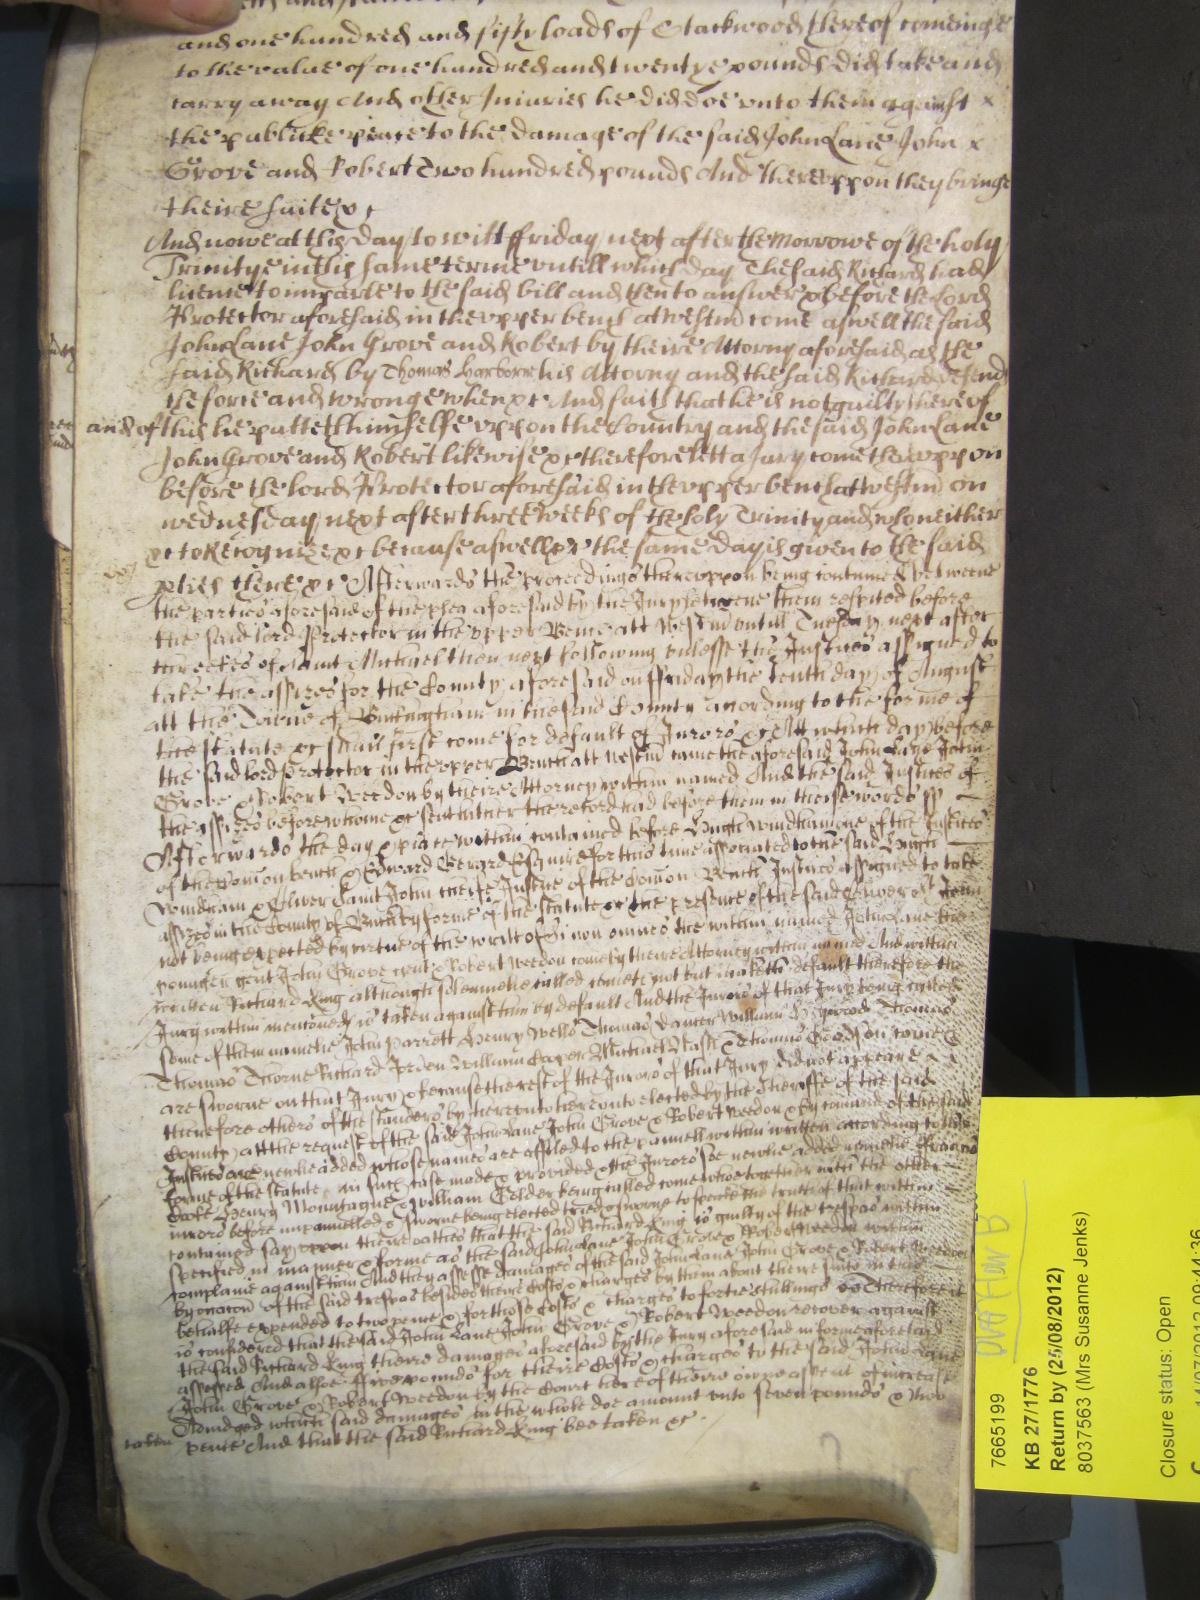 and one hundred and fifty loads of Stackwood thereof comeinge
to the value of one hundred and twentye pounds did take and
carry away And other Iniuries he did doe vnto them against x
the publicke peace to the damage of the said John Lane John x
Grove and Robert Two hundred pounds And therevppon they bringe
theire suite &c
And nowe at this day to witt ffriday next after the Morrowe of the holy
Trinitye in this same terme vntill which day The said Richard had
licence to imparle to the said bill and then to answer &c before the Lord
Protector aforesaid in the vpper bench at Westm come aswell the said
John Lane John Grove and Robert by theire Attorny aforesaid as the
said Richard by Thomas Harborne his Attorny and the said Richard defends
the force and wronge when &c And saith that he is not guilty thereof
and of this he putteth himselfe vppon the Country and the said John Lane
John Grove and Robert likewise &c therefore lett a Jury come therevppon
before the lord Protector aforesaid in the vpper bench at westm on
wednesday next after three weeks of the holy Trinity and who neither
&c to Recognize &c because aswell &c the same day is given to the said
pties there &c Afterwards the proceedings therevppon being continued betweene
the parties aforesaid of the plea aforesaid by the Jury betweene them respited before
the said lord Protector in the vpper Bench att Westm vntill Tuesday next after
three weekes of Saint Michael then next following vnlesse the Justices assigned to
take the assizes for the County aforesaid on ffriday the tenth day of August
att the Towne of Buckingham in the said County according to the forme of
the statute &c shall first come for default of Jurors &c Att which day before
the said lord Protector in the vpper Bench att Westm came the aforesaid John Lane John
Grove & Robert Weedon by theire Attorney within named And the said Justices of
the assizes before whome &c sent hither theire record had before them in theise words ss
Afterwards the day & place within contained before Hugh Windham one of the Justices
of the Comon bench & Edward Gerard Esquire for this time associated to the said Hugh
Windham & Oliver Saint John cheife Justice of the Comon Bench Justices assigned to take
assizes in the County of Buck by forme of the statute &c the presence of the said Oliver St John
not being expected by virtue of the writt of Si non omnes the within named John Lane the
younger gent John Grove gent & Robert Weedon come by theire Attorney within named And within
written Richard King although solemnelie called cometh not but maketh default therefore the
Jury within mentioned is taken against him by default And the Jurors of that Jury being called
some of them namelie John Parrett Henry Wells Thomas Dancer William Thomas
Thomas Thorne Richard William Michael Nash & Thomas Goodson come &
are sworne on that Jury & because the rest of the Jurors of that Jury did not appeare
therefore others of the standers by herevnto elected by the Sheriffe of the said
County att the request of the said John Lane John Grove & Robert Weedon & by comand of the said
Justices are newlie added whose names are affiled to the pannell within written according to the
forme of the statute in such case made & provided & the Jurors soe newlie added namelie ffrancis
Henry Mountague & William being called come whoe together with the other
Jurors before impannelled & sworne being elected tried & sworne to speake the truth of that within
contained say vppon theire oathes that the said Richard King is guilty of the trespas within
specified in manner & forme as the said John Lane John Grove & Robert Weedon within
complaine against him And they assesse damages of the said John Lane John Grove & Robert Weedon
by occacon of the said trespas besides theire costs & charges by them about theire suite in this
behalfe expended to two pence & for those Costs & charges to fortie shillings Therefore it
is considered that the said John Lane John Grove & Robert Weedon recover against
the said Richard King theire damages aforesaid by the Jury aforesaid in forme aforesaid
assessed And alsoe five pounds for theire Costs & charges to the said John Lane
John Grove & Robert Weedon by the Court here of theire owne assent of increase
Adiudged which said damages in the whole doe amount vnto seven pounds & two
pence And that the said Richard King bee taken &c
taken
7665199
KB 27/1776
Return by (25/08/2012)
8037563 (Mrs Susanne Jenks)
Closure status: Open